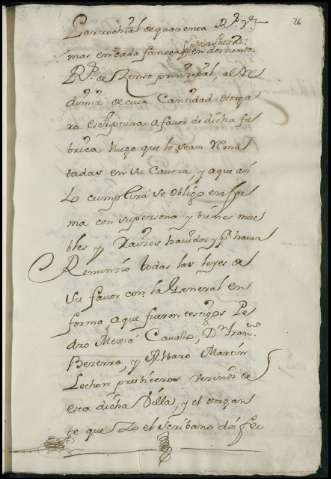 26
Cartuchos de quarenta
mas en cada fanega
Rs. de Zenso prinzipal, al Re
dimir de cuia Cantidad otorga
ra escriptura a favor de dicha fa
brica luego que le sean
tadas en su Cavera, y aque asi
lo cumplira se obligo en for
ma con su persona y bienes mue
bles y Rayses havidos y p.r haver
Renunzio todas las leyes de
su favor con la General en
forma aque fueron testigos Pe
dro Mexia Cavallo, Dn. Fran.co
Bezerra, y Alvaro Martin
Lechon presviteros vezinos de
esta dicha Villa, y el otorgan
te que Yo el escribano doi fee